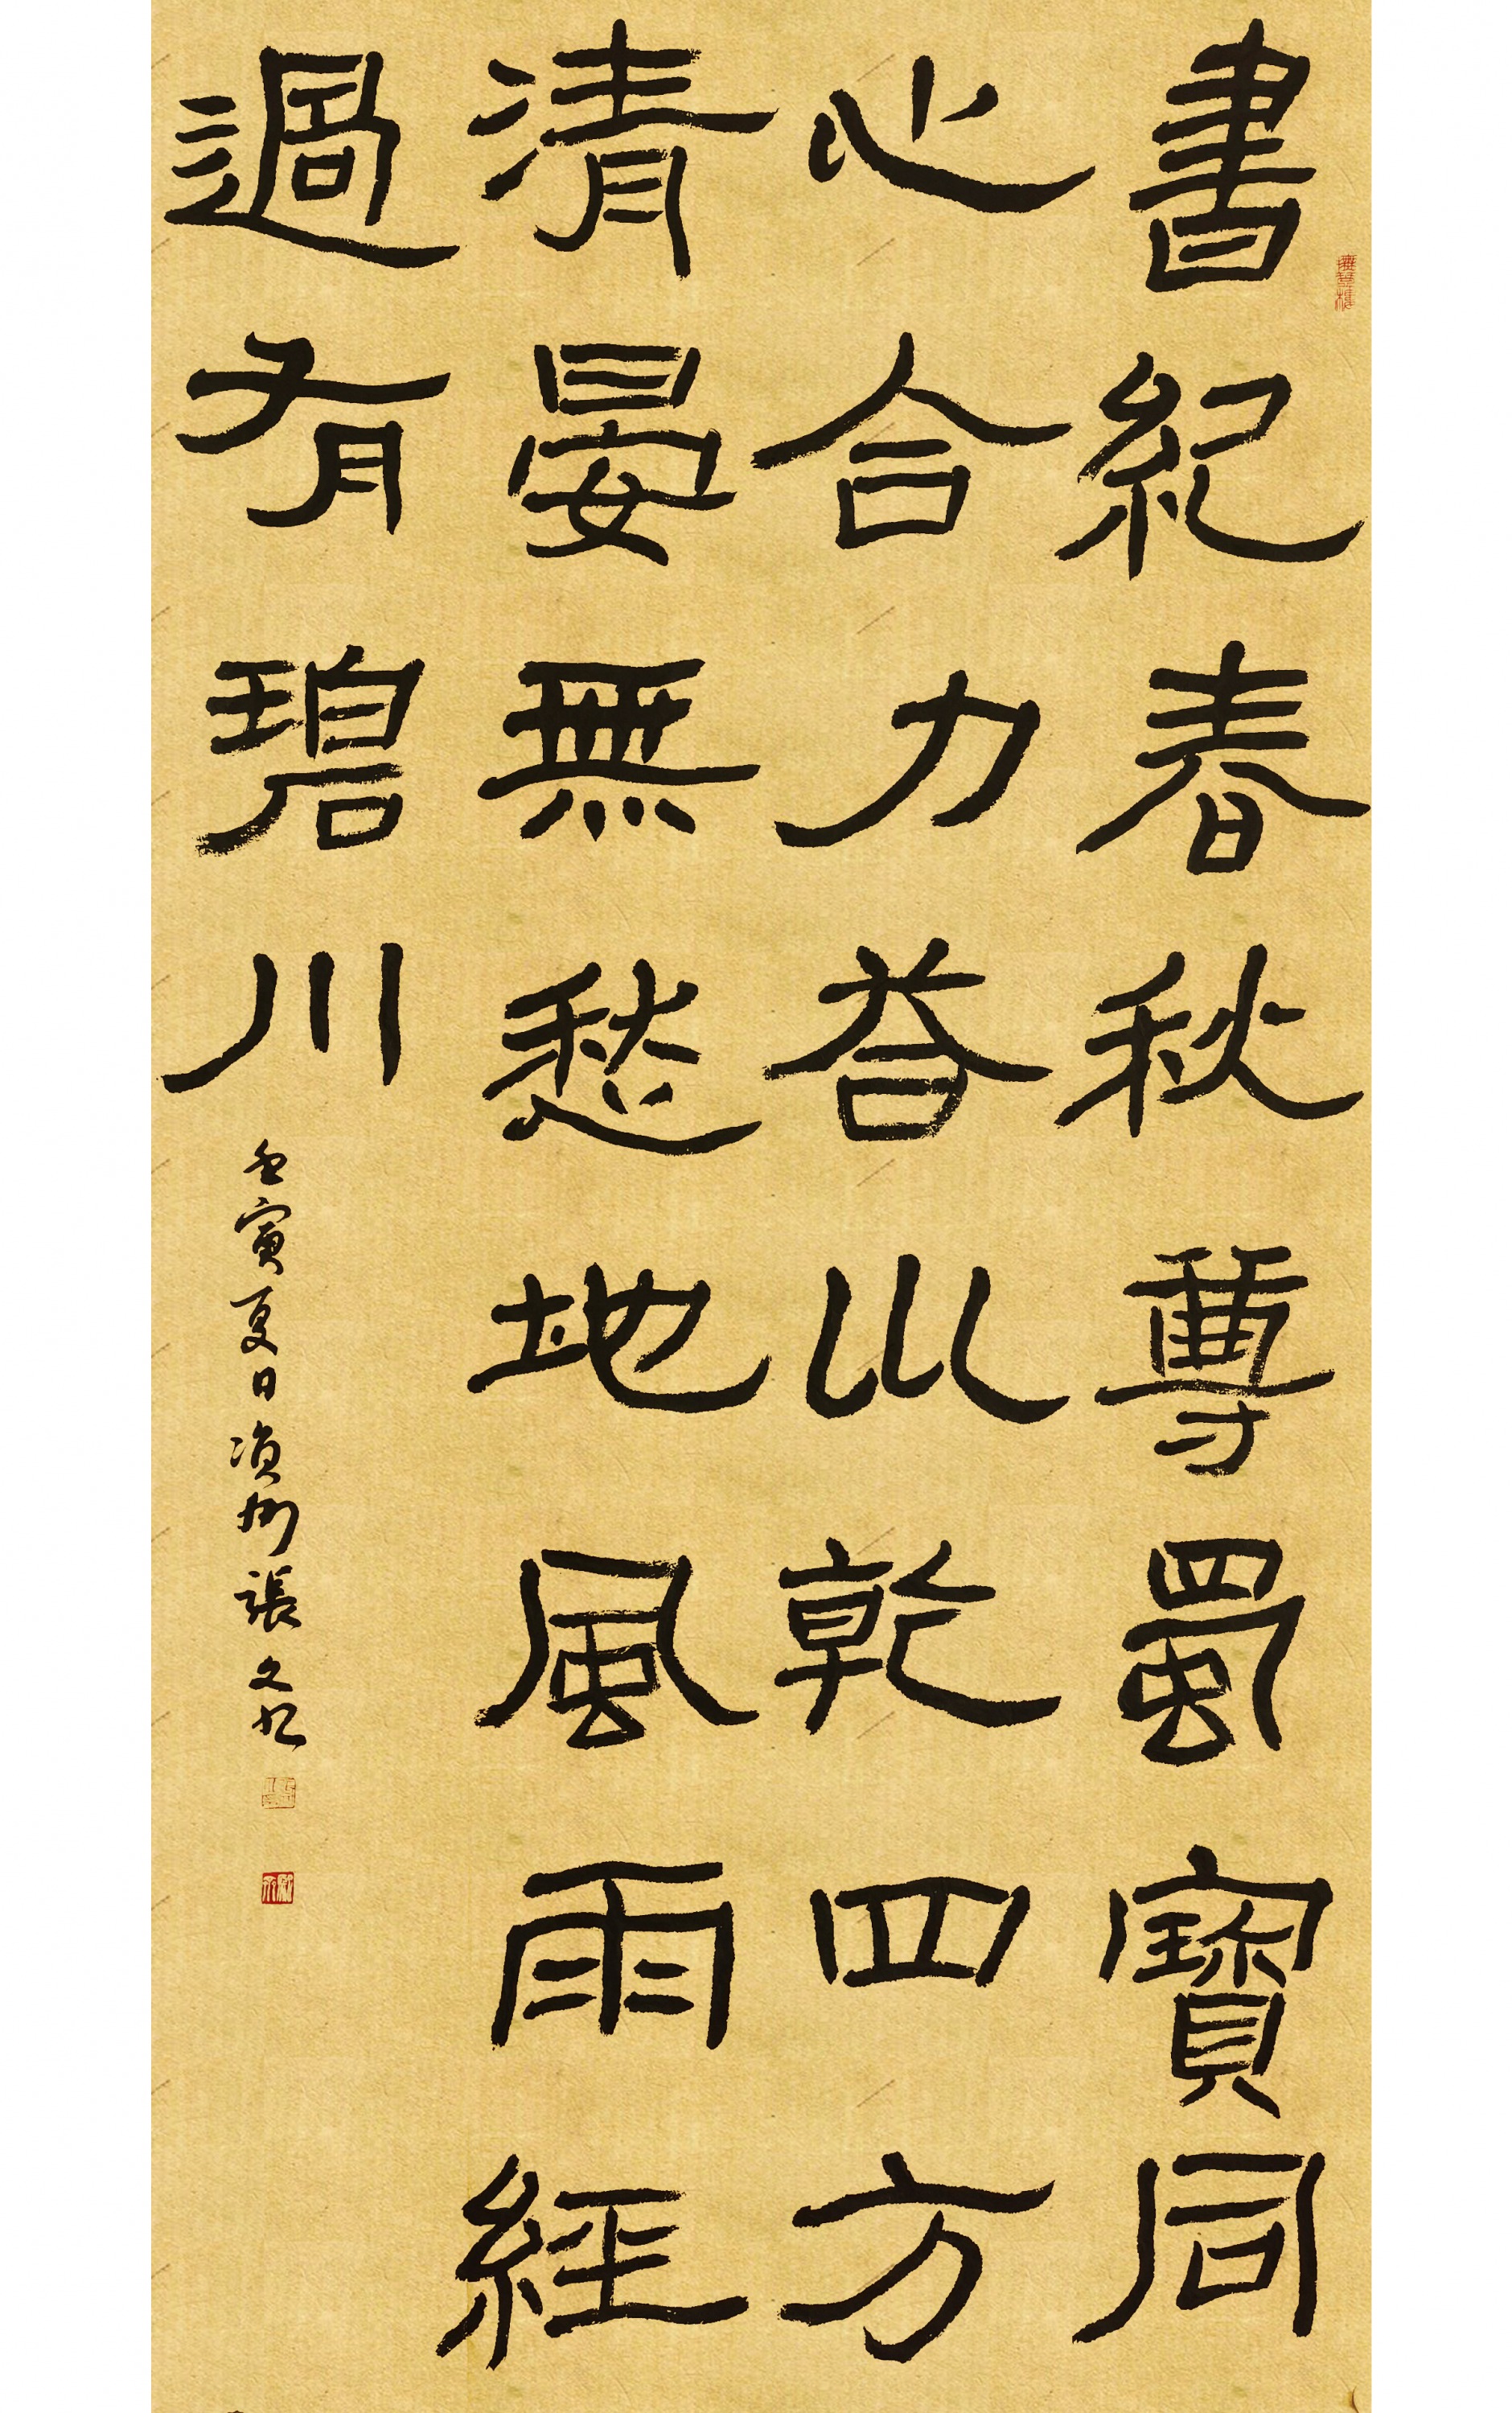 書紀春秋尊蜀寶同
心合力荅坤乾四方
清晏無愁地風雨經
過有碧川
壬寅夏日 州張文